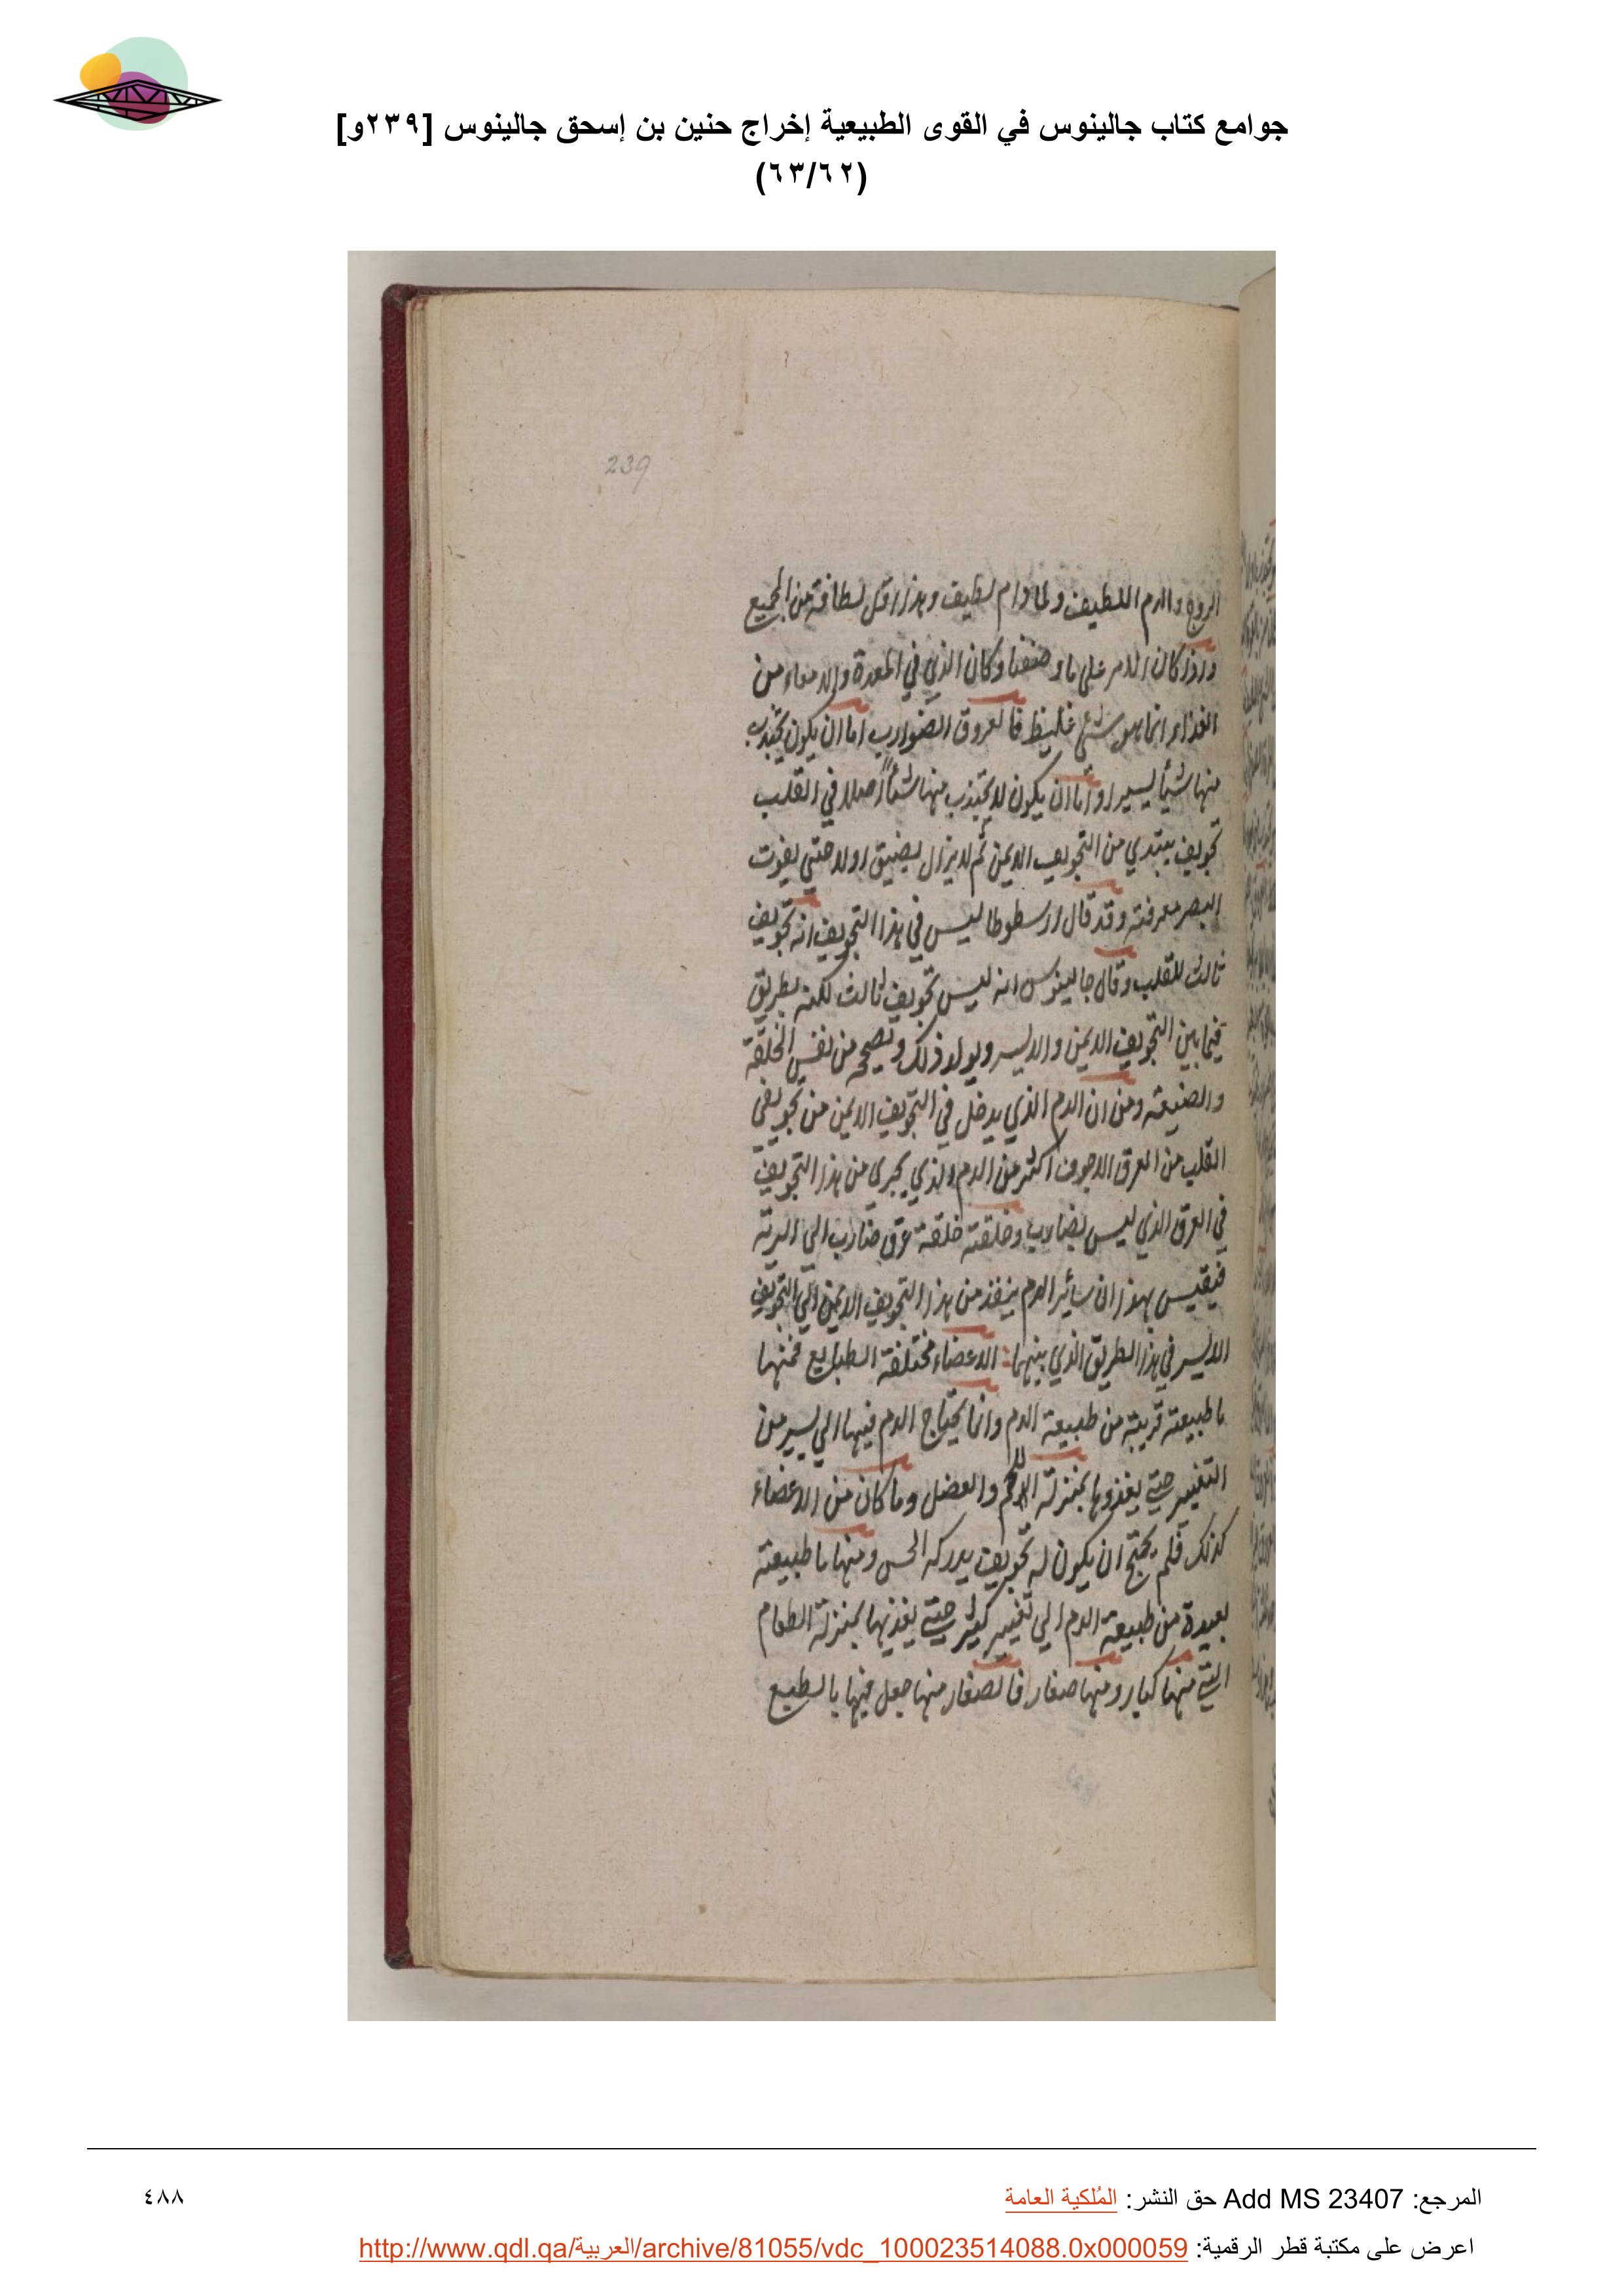 جوامع كتاب جالينوس في القوى الطبيعية إخراج حنين بن إسحق جالينوس [٢٣٩و]
(٦٣/٦٢)
239
الروح والدم اللطيف ولما دام لطيف وهذا اقل لطافة من الجميع
واذا كان الامر على ما وصفنا وكان الذي في المعدة والامعاء من
الغذاء انما هو شئ غليظ فالعروق الضوارب اما ان يكون تجتذب
منها شيأ يسيرا واما ان يكون لا تجتذب منها شيأ اصلا في القلب
تجويف يبتدي من التجويف الايمن ثم لا يزال يضيق اولا حتى يفوت
البصر معرفته وقد قال ارسطوطاليس في هذا التجويف انه تجويف
ثالث للقلب وقال جالينوس انه ليس تجويف ثالث لكنه بطريق
فيما بين التجويف الايمن والايسر ذلك من نفس الخلقة
والصنيعة ومن ان الدم الذي يدخل في التجويف الايمن من تجويفي
القلب من العرق الاجوف اكثر من الدم والذي يجري من هذا التجويف
في العرق الذي ليس بضارب وخلقته خلقة عرق ضارب الى الرئة
فيقيس بهذا ان سائر الدم ينفذ من هذا التجويف الايمن الى التجويف
الايسر في هذا الطريق الذي بينهما: الاعضاء مختلفة الطبايع فمنها
ما طبيعته قريبة من طبيعة الدم وانما يحتاج الدم فيها الى يسير من
التغيير حتى يغذوها بمنزلة اللحم والعضل وما كان من الاعضاء
كذلك فلم يحتج ان يكون له تجويف يدركه الحس ومنها ما طبيعته
بعيدة من طبيعة الدم الى تغيير كثير حتى يغذيها بمنزلة الطعام
التي منها كبار ومنها صغار فالصغار منها جعل فيها بالطبع
المرجع: Add MS 23407 حق النشر: المُلكية العامة
٤٨٨
اعرض على مكتبة قطر الرقمية: http://www.qdl.qa/العربية/archive/81055/vdc_100023514088.0x000059